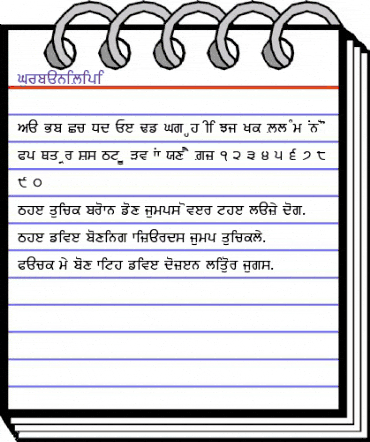 ਘੁਰਬੳਨਲਿਿਪਿ
ਅੳ ਭਬ ਛਚ ਧਦ ੳੲ ਢਡ ਘਗ ੍ਹਹ ੀਿ ਝਜ ਖਕ ਲ਼ਲ ੰਮ ਂਨ ੌੋ
ਫਪ ਥਤ ੍ਰਰ ਸ਼ਸ ਠਟ ੂੁ ੜਵ ਾਁ ਯਣ ੈੇ ਗ਼ਜ਼ ੧ ੨ ੩ ੪ ੫ ੬ ੭ ੮
੯ ੦
ਠਹੲ ਤੁਚਿਕ ਬਰੋਾਨ ਡੋਣ ਜੁਮਪਸ ੋਵੲਰ ਟਹੲ ਲੳਜ਼ੇ ਦੋਗ.
ਠਹੲ ਡਵਿੲ ਬੋਣਨਿਗ ਾਜ਼ਿੳਰਦਸ ਜੁਮਪ ਤੁਚਿਕਲੇ.
ਫੳਚਕ ਮੇ ਬੋਣ ਾਟਿਹ ਡਵਿੲ ਦੋਜ਼ੲਨ ਲਤਿੁੋਰ ਜੁਗਸ.